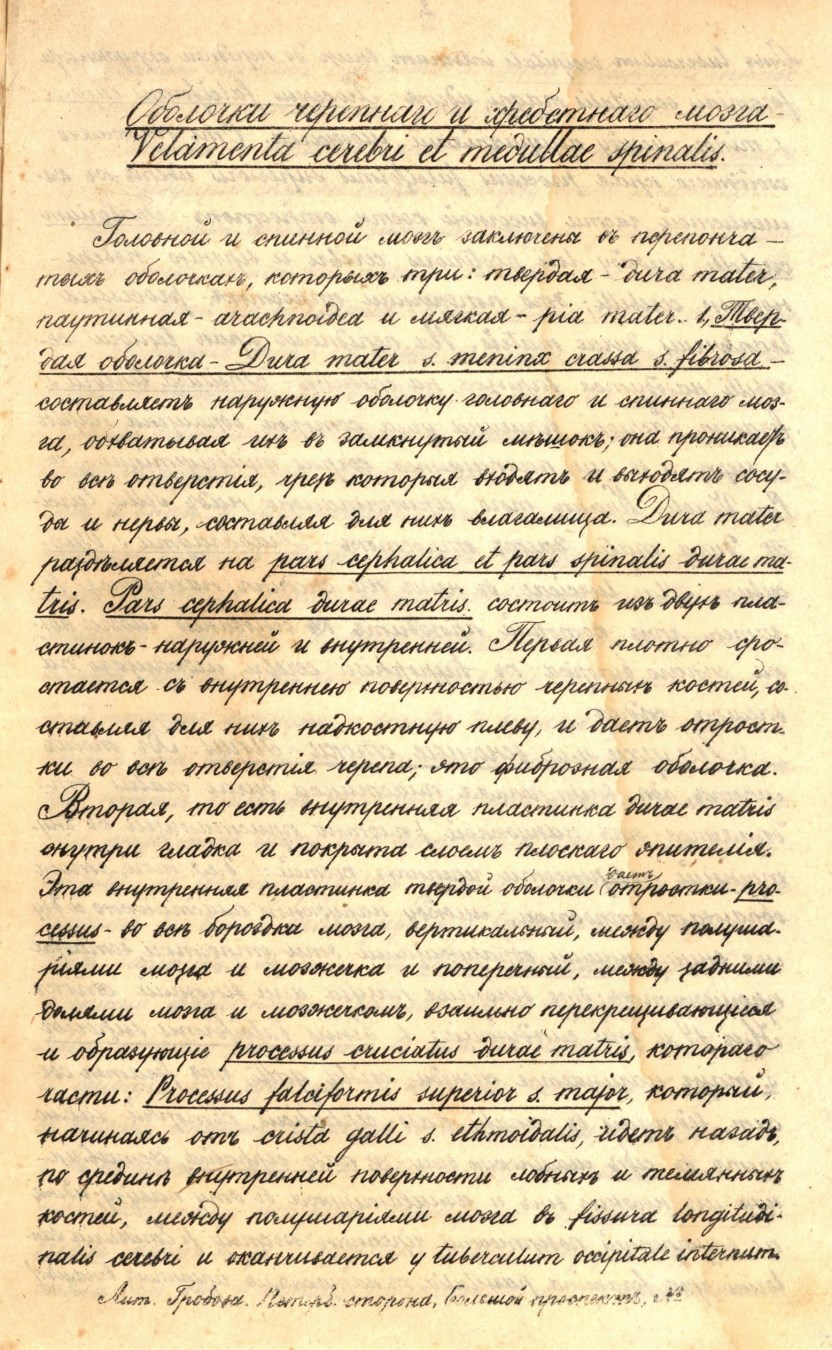 Оболочки черепнаго и хребетнаго мозга
Velamenta cerebri et medullae spinalis.
Головной и спинной мозгъ заключены въ перепонча-
тыхъ оболочкахъ, которыхъ три: твердая - dura mater,
паутинная - arachnoidea и мягкая - pia mater. 1, Твер-
дая оболочка - Dura mater s. meninx crassa s. fibrosa -
составляетъ наружную оболочку головнаго и спиннаго моз-
га, обхватывая ихъ въ замкнутый мѣшокъ; она проникаетъ
во всѣ отверстія, чрезъ которыя входятъ и выходятъ сосу-
ды и нервы, составляя для нихъ влагалища. Dura mater
раздѣляется на pars cephalica et pars spinalis durae ma-
tris. Pars cephalica durae matris. состоитъ изъ двухъ пла-
стинокъ - наружней и внутренней. Первая плотно сро-
стается съ внутреннею поверхностью черепныхъ костей, со-
ставляя для нихъ надкостную плеву, и даетъ отрост-
ки во всѣ отверстія черепа; это фиброзная оболочка.
Вторая, то есть внутренняя пластинка durae matris
внутри гладка и покрыта слоемъ плоскаго эпителія.
Эта внутренняя пластинка твердой оболочки даетъ отростки - pro-
cessus - во всѣ бороздки мозга, вертикальный, между полуша-
ріями мозга и мозжечка и поперечный, между задними
долями мозга и мозжечкомъ, взаимно перекрещивающіеся
и образующіе processus cruciatus durae matris, котораго
части: Processus falciformis superior s. major, который,
начинаясь отъ crista galli s. ethmoidalis, идетъ назадъ,
по срединѣ внутренней поверхности лобныхъ и темянныхъ
костей, между полушаріями мозга въ fissura longitudi-
nalis cerebri и оканчивается у tuberculum occipitale internum.
Лит. Гробова. Петерб. сторона, Большой проспектъ, №